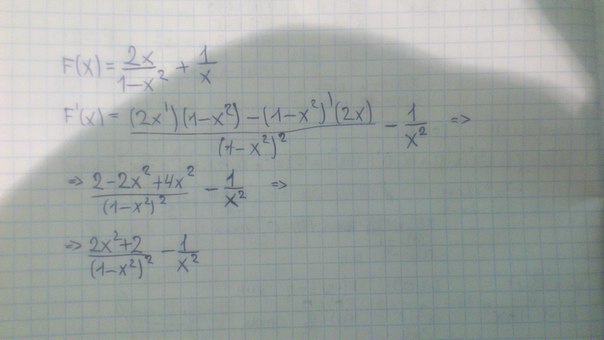 F(x) = 2x/(1-x²) + 1/x
F'(x) = ((2x')(1-x²) - (1-x²)'(2x))/(1-x²)² - 1/x² =>
=> (2-2x²+4x²)/(1-x²)² - 1/x² =>
=> (2x²+2)/(1-x²)² - 1/x²